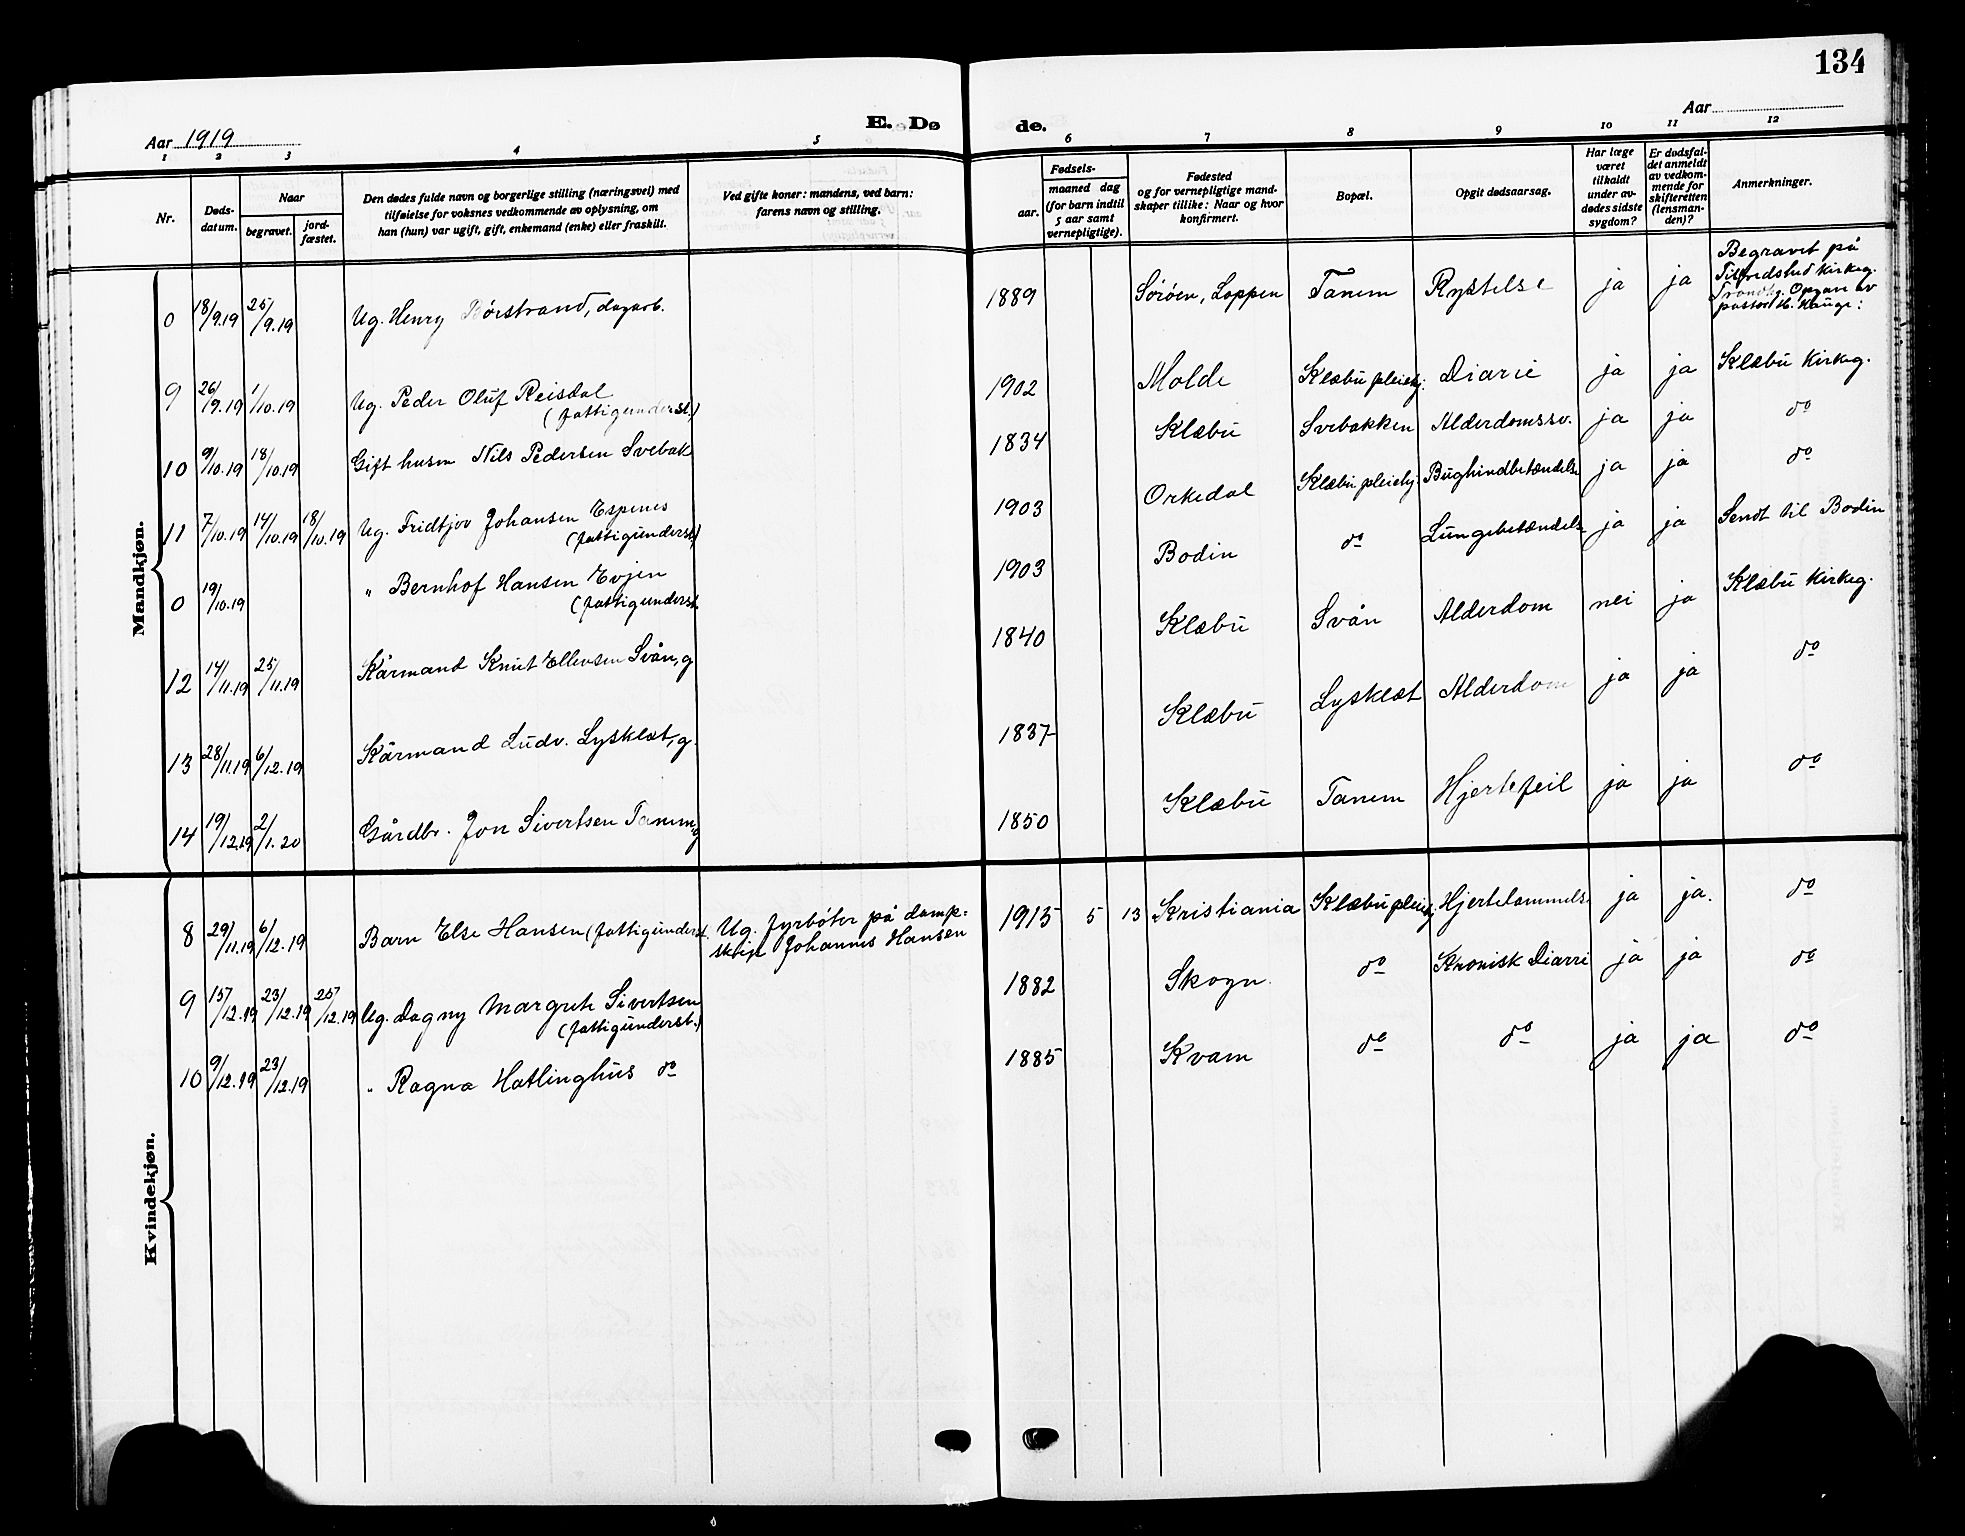 134
Aar 1919
E. Dø
de.
Aar
1 2 3 4 5 6 7 8 9 10 11 12
Nr.
Døds-
datum.
Naar
begravet.
jord-
fæstet.
Den dødes fulde navn og borgerlige stilling (næringsvei) med
tilføielse for voksnes vedkommende av oplysning, om
han (hun) var ugift, gift, enkemand (enke) eller fraskilt.
Ved gifte koner: mandens, ved barn:
farens navn og stilling.
Fødsels-
aar.
maaned dag
(for barn indtil
5 aar samt
vernepligtige).
Fødested
og for vernepligtige mand-
skaper tillike: Naar og hvor
konfirmert.
Bopæl.
Opgit dødsaarsag.
Har læge
været
tilkaldt
under av-
dødes sidste
sygdom?
Er dødsfal-
det anmeldt
av vedkom-
mende for
skifteretten
(lensman-
den)?
Anmerkninger.
Mandkjøn.
0 18/9.19 25/9.19 Ug. Henry Børstrand, dagarb. 1889 Sørøen, Loppen Tanem Rystelse ja ja Begravet på
Tilfredshed kirkeg.
Trondhj. Opgave av
pastor H. Hauge:
9 26/9.19 1/10.19 Ug. Peder Oluf Reisdal 1902 Molde Klæbu pleiehj. Diarié ja ja Klæbu kirkeg.
(fattigunderst.)
10 9/10.19 18/10.19 Gift husm Nils Pedersen Svebak 1834 Klæbu Svebakken Alderdomssv. ja ja do
11 7/10.19 14/10.19 18/10.19 Ug. Fridtjov Johansen Espenes 1903 Orkedal Klæbu pleiehj. Bughindbetændelse ja ja do
(fattigunderst)
0 19/10.19 " Bernhof Hansen Evjen 1903 Bodin do Lungebetændels ja ja Sendt til Bodin
(fattigunderst.
12 14/11.19 25/11.19 Kårmand Knut Ellevsen Svån, g 1840 Klæbu Svån Alderdom nei ja Klæbu kirkeg.
13 28/11.19 6/12.19 Kårmand Ludv. Lysklæt, g. 1837 Klæbu Lysklæt Alderdom ja ja do
14 19/12.19 2/1.20 Gårdbr. Jon Sivertsen Tanem, g 1850 Klæbu Tanem Hjertefeil ja ja do
Kvindekjøn.
8 29/11.19 6/12.19 Barn Else Hansen (fattigunderst. Ug. fyrbøter på damp- 1915 5 13 Kristiania Klæbu pleiehj. Hjertelammels. ja ja. do
skip Johannes Hansen
9 15/12.19 23/12.19 25/12.19 Ug. Dagny Margrete Sivertsen 1882 Skogn. do Kronisk Diarré ja ja do
(fattigunderst.)
10 9/12.19 23/12.19 " Ragna Hatlinghus do 1885 Kvam do do ja ja do